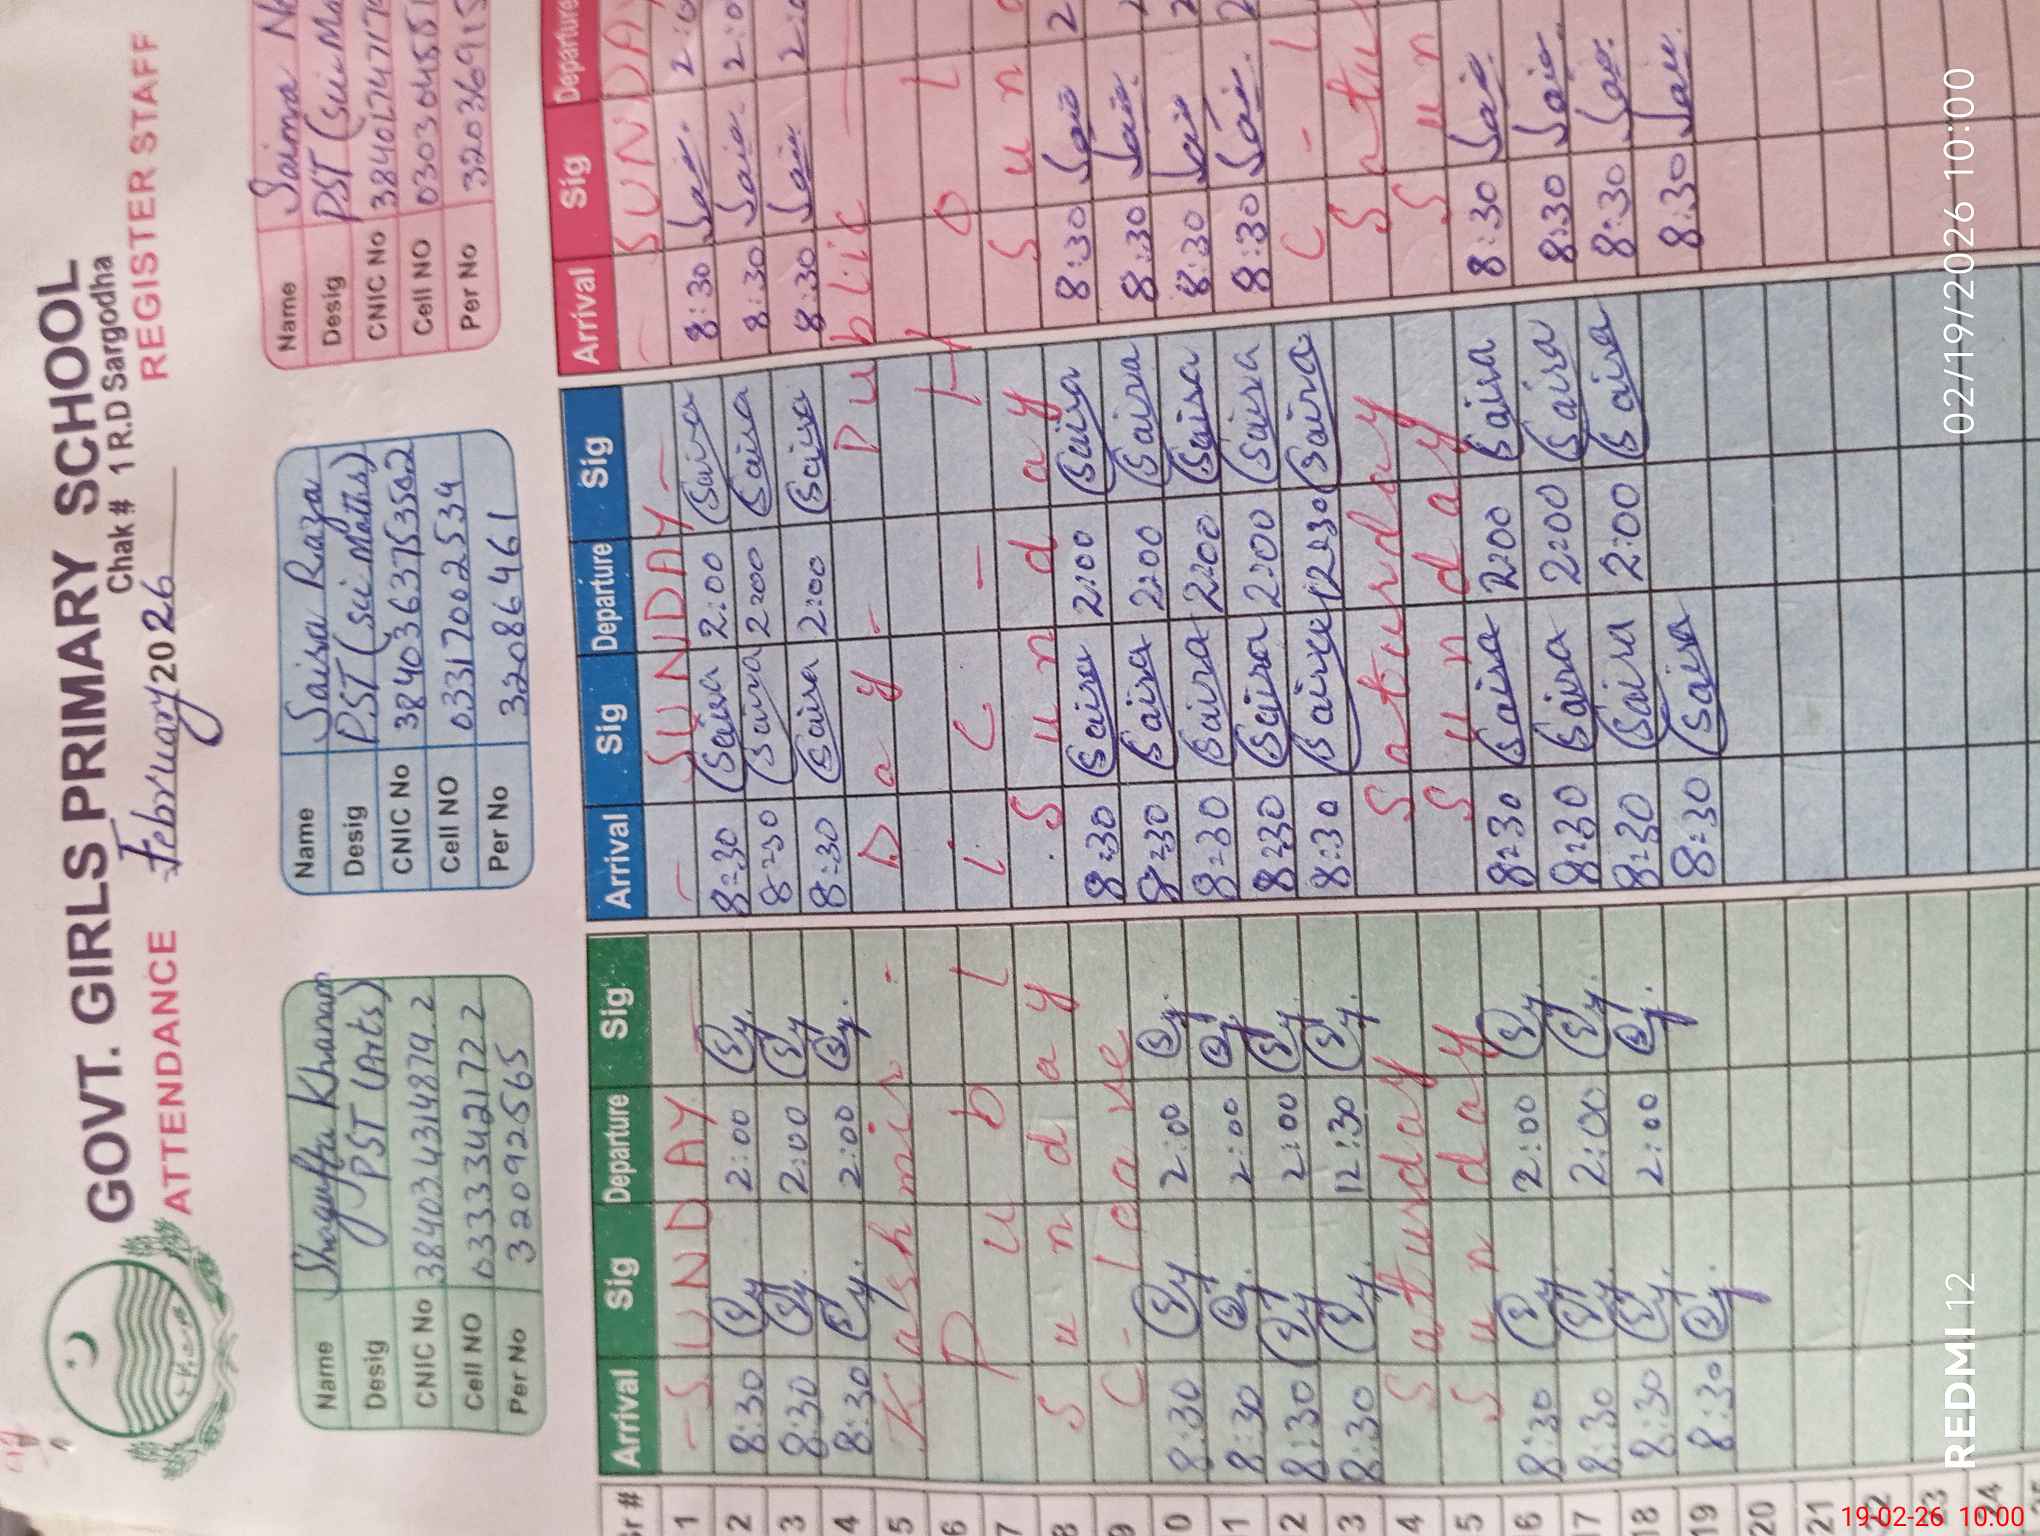 GOVT. GIRLS PRIMARY SCHOOL
Chak # 1 R.D Sargodha
ATTENDANCE February 2026 REGISTER STAFF
Name Shagufta Khanam
Desig PST (Arts)
CNIC No 3840343148742
Cell NO 03333421722
Per No 32092565
Name Saira Raza
Desig PST (sci Maths)
CNIC No 3840363753502
Cell NO 03317002534
Per No 32086461
Name Saima
Desig PST (Sci Ma
CNIC No
Cell NO
Per No
Sr # Arrival Sig Departure Sig Arrival Sig Departure Sig Arrival Sig Departure
1 - SUNDAY - SUNDAY - SUNDAY
2 8:30 2:00 8:30 Saira 2:00 Saira 8:30
3 8:30 2:00 8:30 Saira 2:00 Saira 8:30
4 8:30 2:00 8:30 Saira 2:00 Saira 8:30
5 Kashmir - Day - Public
6 Pub L
7
8 Sunday Sunday Sun
9 C-leave 8:30 Saira 2:00 Saira 8:30
0 8:30 2:00 8:30 Saira 2:00 Saira 8:30
1 8:30 2:00 8:30 Saira 2:00 Saira 8:30
2 8:30 2:00 8:30 Saira 2:00 Saira 8:30
3 8:30 12:30 8:30 Saira 12:30 Saira C - L
4 Saturday Saturday Satu
5 Sunday Sunday Sun
16 8:30 2:00 8:30 Saira 2:00 Saira 8:30
17 8:30 2:00 8:30 Saira 2:00 Saira 8:30
18 8:30 2:00 8:30 Saira 2:00 Saira 8:30
19 8:30 8:30 Saira 8:30
20
21
22
23
24
REDMI 12 02/19/2026 10:00
19-02-26 10:00